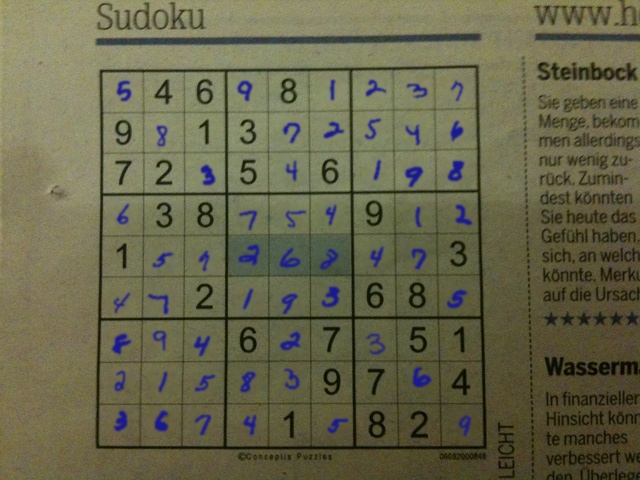 Sudoku
www.h
5 4 6 9 8 1 2 3 7
9 8 1 3 7 2 5 4 6
7 2 3 5 4 6 1 9 8
6 3 8 7 5 4 9 1 2
1 5 9 2 6 8 4 7 3
4 7 2 1 9 3 6 8 5
8 9 4 6 2 7 3 5 1
2 1 5 8 3 9 7 6 4
3 6 7 4 1 5 8 2 9
©Conceptis Puzzles
LEICHT
Steinbock
Sie geben eine
Menge, bekom
men allerdings
nur wenig zu-
rück. Zumin-
dest könnten
Sie heute das
Gefühl haben,
sich, an welch
könnte. Merku
auf die Ursach
★★★★★★
Wasserma
In finanzieller
Hinsicht könn
te manches
verbessert we
den. Überlege